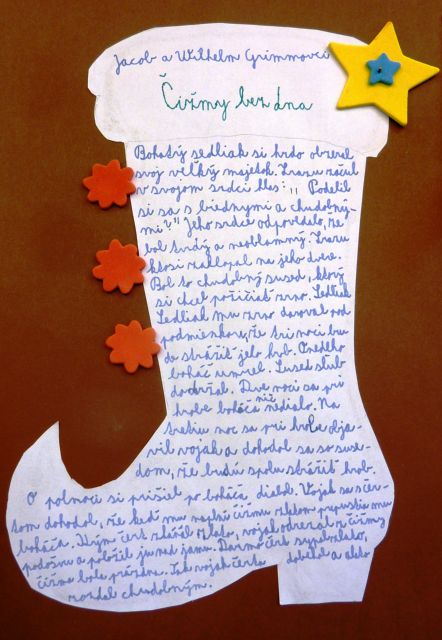 Jacob a Wilhelm Grimmovci
Čižmy bez dna
Bohatý sedliak si hrdo obzeral
svoj veľký majetok. Zrazu začul
v svojom srdci hlas: ,, Podelil
si sa s biednymi a chudobný-
mi?" Jeho srdce odpovedalo, že
bol tvrdý a neoblomný. Zrazu
ktosi zaklopal na jeho dvere.
Bol to chudobný sused, ktorý
si chcel požičiať zrno. Sedliak
Sedliak mu zrno daroval pod
podmienkou, že tri noci bu
de strážiť jeho hrob. Onedlho
boháč umrel. Sused sľub
dodržal. Dve noci sa pri
hrobe boháča nič nedialo. Na
tretiu noc sa pri hrobe obja-
vil vojak a dohodol sa so suse-
dom, že budú spolu strážiť hrob.
O polnoci si prišiel po boháča diabol. Vojak sa s čer-
tom dohodol, že keď mu naplní čižmu zlatom prepustia mu
boháča. Kým čert zháňal zlato, vojak odrezal z čižmy
podošvu a položil ju nad jamu. Darmo čert sypal zlato,
čižma bola prázdna. Tak vojak čerta dobehol a zlato
rozdal chudobným.